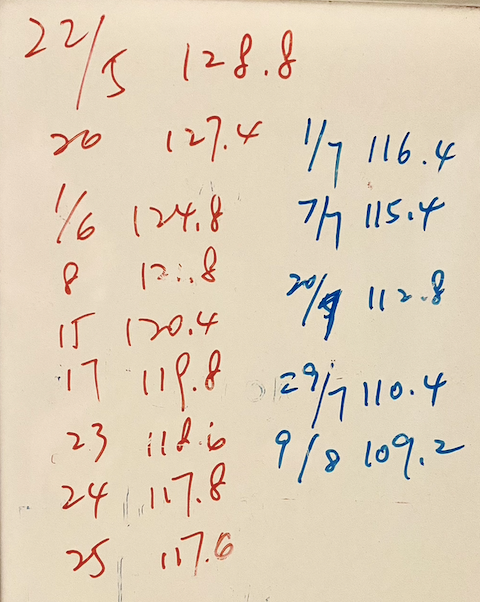 22/5 128.8
20 127.4
1/6 124.8
8 12 .8
15 120.4
17 119.8
23 118.6
24 117.8
25 117.6
1/7 116.4
7/7 115.4
20/7 112.8
29/7 110.4
9/8 109.2